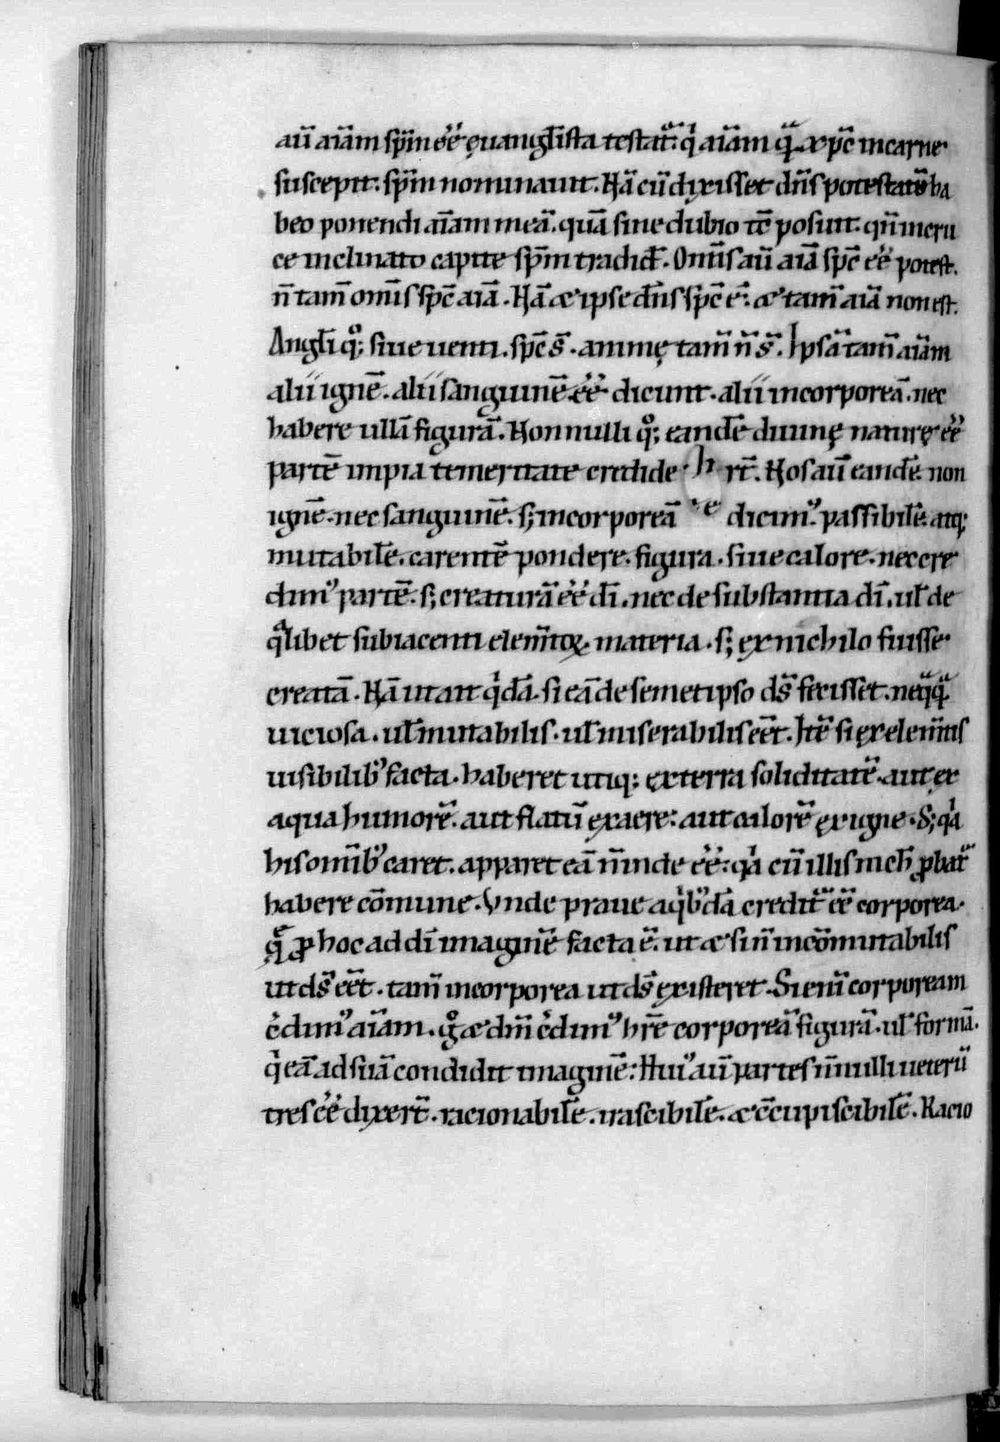 aū aīam sp̄m eē̄ ęuangl̄ista testat᷑. qͥ aīam qā̄ & xp̄c incarne
suscepit. sp̄m nominauit. Nā cū dixisset dn̄s potestatē ha
beo ponendi aīam meā. quā sine dubio tc̄ posuit. qn̄ incru
ce inclinato capite sp̄m tradid̄. Omīs aū aīa sp̄c eē̄ potest.
n̄ tam̄ omīs sp̄c aīa. Nā & ipse dn̄s sp̄c ē. & tam̄ aīa non est.
Angl̄i qͦꝫ siue uenti. sp̄c s̄. animę tam̄ n̄ s̄. Ipsā tam̄ aīam
alii ignē. alii sanguinē eē̄ dicunt. alii incorporeā. nec
habere ullā figurā. Nonnulli qͦꝫ eandē diuinę naturę eē̄
partē impia temeritate credide rt̄. Nos aū eandē. non
ignē. nec sanguinē. sꝫ incorporeā dicimꝰ passibilē. atqꝫ
mutabilē. carentē pondere. figura. siue calore. nec cre
dimꝰ partē. sꝫ creaturā eē̄ dī. nec de substantia dī. ul̄ de
qͣlibet subiacenti elem̄toꝝ materia. sꝫ ex nichilo fuisse
creatā. Nā ut ait qͥdā. si eā de semetipso ds̄ fecisset. neqͣqͣ̄
uiciosa. ul̄ mutabilis. ul̄ miserabilis eēt̄. Itē si ex elem̄tis
uisibilibꝰ facta. haberet utiqꝫ ex terra soliditatē. aut ex
aqua humorē. aut flatū ex aere. aut calorē ex igne. Sꝫ qͥa
his omībꝰ caret. apparet eā n̄ inde eē̄. qͥa cū illis nich̄ ꝓbat᷑
habere cōmune. Vnde praue a qͥbꝰdā credit᷑ eē̄ corporea.
qͣ̄ ꝓ hoc ad dī imaginē facta ē. ut & si n̄ incōmutabilis
ut ds̄ eēt̄. tam̄ incorporea ut ds̄ existeret. Si enī corpoream
c̄dimꝰ aīam. gͦ & dm̄ c̄dimꝰ hr̄e corporeā figurā. ul̄ formā.
qͥ eā ad suā condidit imaginē. Huiꝰ aū partes n̄nulli ueterū
tres eē̄ dixert̄. racionabilē. irascibilē. & c̄cupiscibilē. Racio